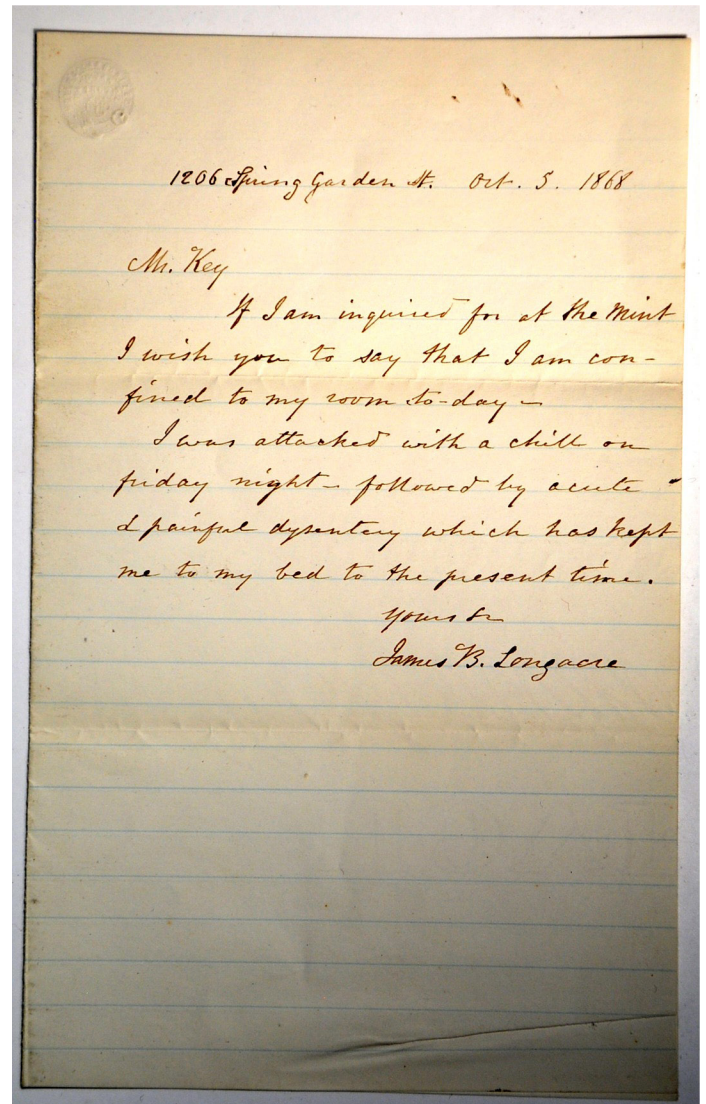 1206 Spring Garden St. Oct. 5. 1868
Mr. Key
If I am inquired for at the Mint
I wish you to say that I am con-
fined to my room to-day –
I was attacked with a chill on
friday night – followed by acute
& painful dysentery which has kept
me to my bed to the present time.
Yours &c
James B. Longacre